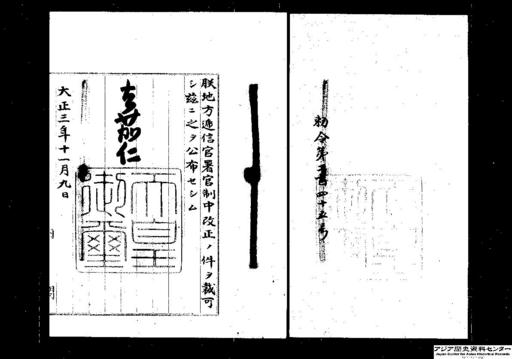 勅令第二百四十五号
朕地方逓信官署官制中改正ノ件ヲ裁可
シ茲ニ之ヲ公布セシム
嘉仁
天皇
御璽
大正三年十一月九日
アジア歴史資料センター
Japan Center for Asian Historical Records